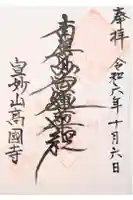 奉拝
令和六年十月六日
南無妙法蓮華経
宝妙山高國寺